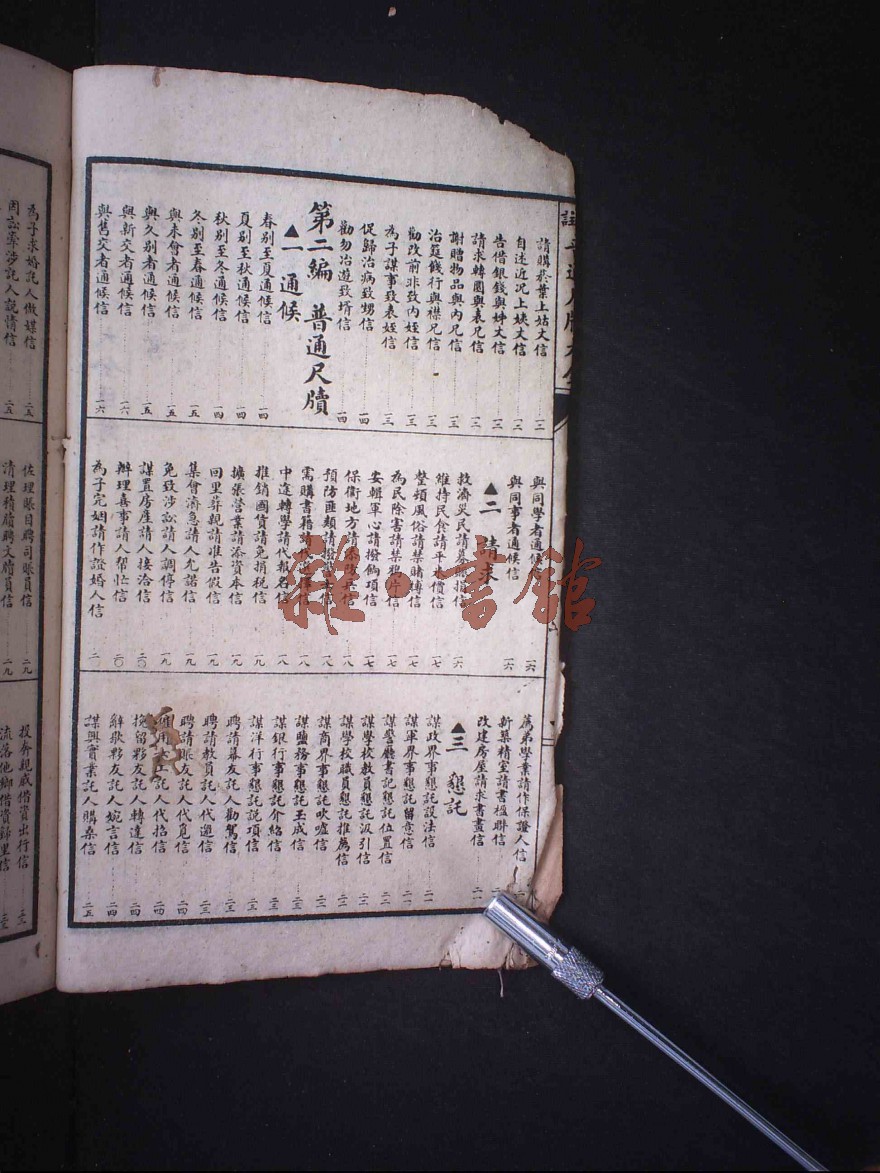 請購菸葉上姑丈信 一二
自述近况上姨丈信 一二
告借銀錢與妹丈信 一二
請求韓園與表兄信 一二
謝贈物品與內兄信 一三
治筵餞行與襟兄信 一三
勸改前非致內姪信 一三
為子謀事致表姪信 一三
促歸治病致甥信 一四
勸勿冶遊致壻信 一四
第二編 普通尺牘
▲一 通候
春别至夏通候信 一四
夏别至秋通候信 一四
秋别至冬通候信 一四
冬别至春通候信 一五
與未會者通候信 一五
與久别者通候信 一五
與新交者通候信 一六
與舊交者通候信 一六
與同學者通候 一六
與同事者通候信 一六
▲二 請求
救濟災民請募捐信 一六
維持民食請平價信 一七
整頓風俗請禁賭博信 一七
為民除害請禁鴉片信 一七
安輯軍心請撥餉項信 一七
保衛地方請 信 一八
預防匪類請撥 信 一八
需購書籍請 信 一八
中途轉學請代報名信 一八
推銷國貨請免捐稅信 一九
擴張營業請添資本信 一九
回里葬親請准告假信 一九
集會濟急請人允諾信 一九
免致涉訟請人調停信 一九
謀置房產請人接洽信 二〇
辦理喜事請人幫忙信 二〇
為子完姻請作證婚人信 二一
薦弟學業請作保證人信
新築精室請書楹聯信
改建房屋請求書畫信 二一
▲三 懇託
謀政界事懇託設法信 二一
謀軍界事懇託留意信 二一
謀警廳書記懇託位置信 二二
謀學校教員懇託汲引信 二二
謀學校職員懇託推薦信 二二
謀商界事懇託吹噓信 二二
謀鹽務事懇託玉成信 二三
謀銀行事懇託介紹信 二三
謀洋行事懇託說項信 二三
聘請幕友託人勸駕信 二三
聘請教員託人代邀信 二三
聘請賬友託人代覓信 二四
託人代招信 二四
挽留夥友託人轉達信 二四
辭歇夥友託人婉言信 二四
謀興實業託人購桑信 二五
為子求婚託人做媒信 二五
因訟牽涉託人說情信 二五
佐理賬目聘司賬員信 二九
清理積牘聘文牘員信 二九
投奔親戚借資出行信 三三
流落他鄉借資歸里信 三三
雜·書館